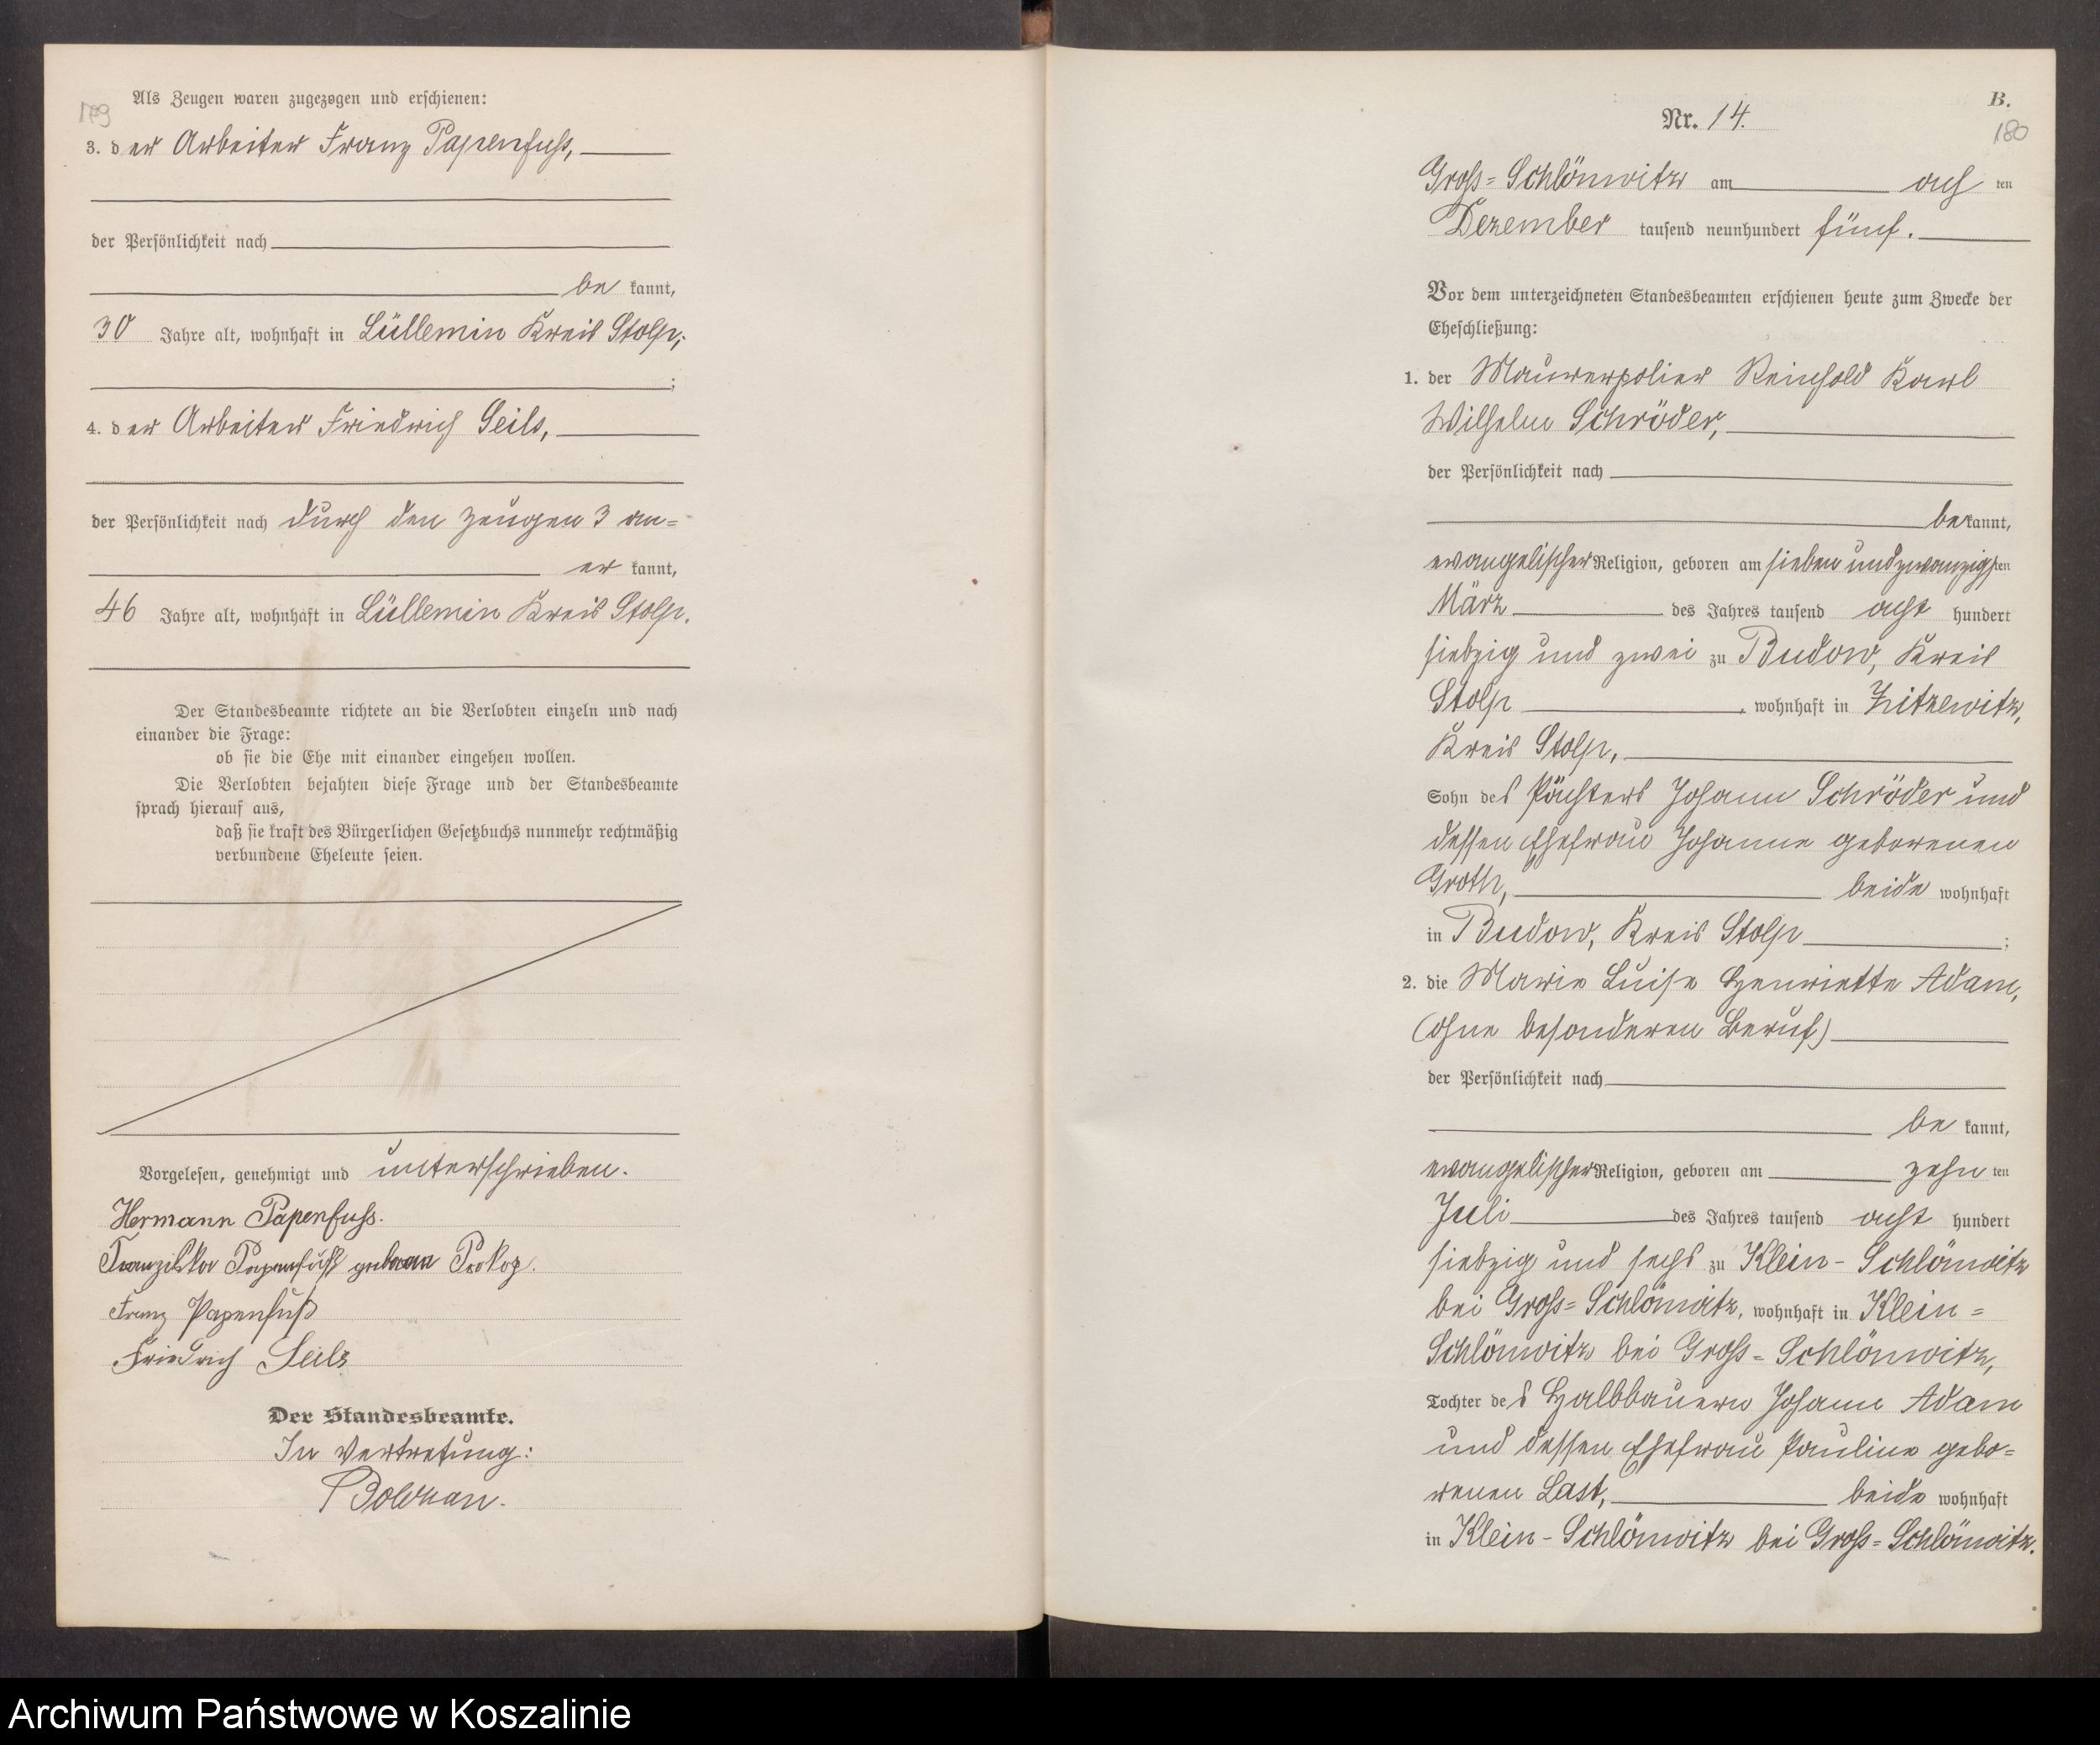 179
Als Zeugen waren zugezogen und erschienen:
3. der Arbeiter Franz Papenfuß,
der Persönlichkeit nach
be kannt,
30 Jahre alt, wohnhaft in Lüllemin Kreis Stolp;
;
4. der Arbeiter Friedrich Seils,
der Persönlichkeit nach durch den Zeugen 3 an=
er kannt,
46 Jahre alt, wohnhaft in Lüllemin Kreis Stolp.
Der Standesbeamte richtete an die Verlobten einzeln und nach
einander die Frage:
ob sie die Ehe mit einander eingehen wollen.
Die Verlobten bejahten diese Frage und der Standesbeamte
sprach hierauf aus,
daß sie kraft des Bürgerlichen Gesetzbuchs nunmehr rechtmäßig
verbundene Eheleute seien.
Vorgelesen, genehmigt und unterschrieben.
Hermann Papenfuß.
Franziska Papenfuß geboren Prokop.
Franz Papenfuß
Friedrich Seils
Der Standesbeamte.
In Vertretung:
B.
Nr. 14.
180
Groß=Schlönwitz am ach ten
Dezember tausend neunhundert fünf.
Vor dem unterzeichneten Standesbeamten erschienen heute zum Zwecke der
Eheschließung:
1. der Maurerpolier Reinhold Karl
Wilhelm Schröder,
der Persönlichkeit nach
bekannt,
evangelischer Religion, geboren am sieben und zwanzigsten
März des Jahres tausend acht hundert
siebzig und zwei zu Budow, Kreis
Stolp, wohnhaft in Zitzewitz,
Kreis Stolp,
Sohn des Pächters Johann Schröder und
dessen Ehefrau Johanne geborenen
Groth, beide wohnhaft
in Budow, Kreis Stolp ;
2. die Marie Luise Henriette Adam,
(ohne besonderen Beruf)
der Persönlichkeit nach
be kannt,
evangelischer Religion, geboren am zehn ten
Juli des Jahres tausend acht hundert
siebzig und sechs zu Klein-Schlönwitz
bei Groß=Schlönwitz, wohnhaft in Klein=
Schlönwitz bei Groß=Schlönwitz,
Tochter des Halbbauern Johann Adam
und dessen Ehefrau Pauline gebo=
renen Last, beide wohnhaft
in Klein-Schlönwitz bei Groß=Schlönwitz.
Archiwum Państwowe w Koszalinie